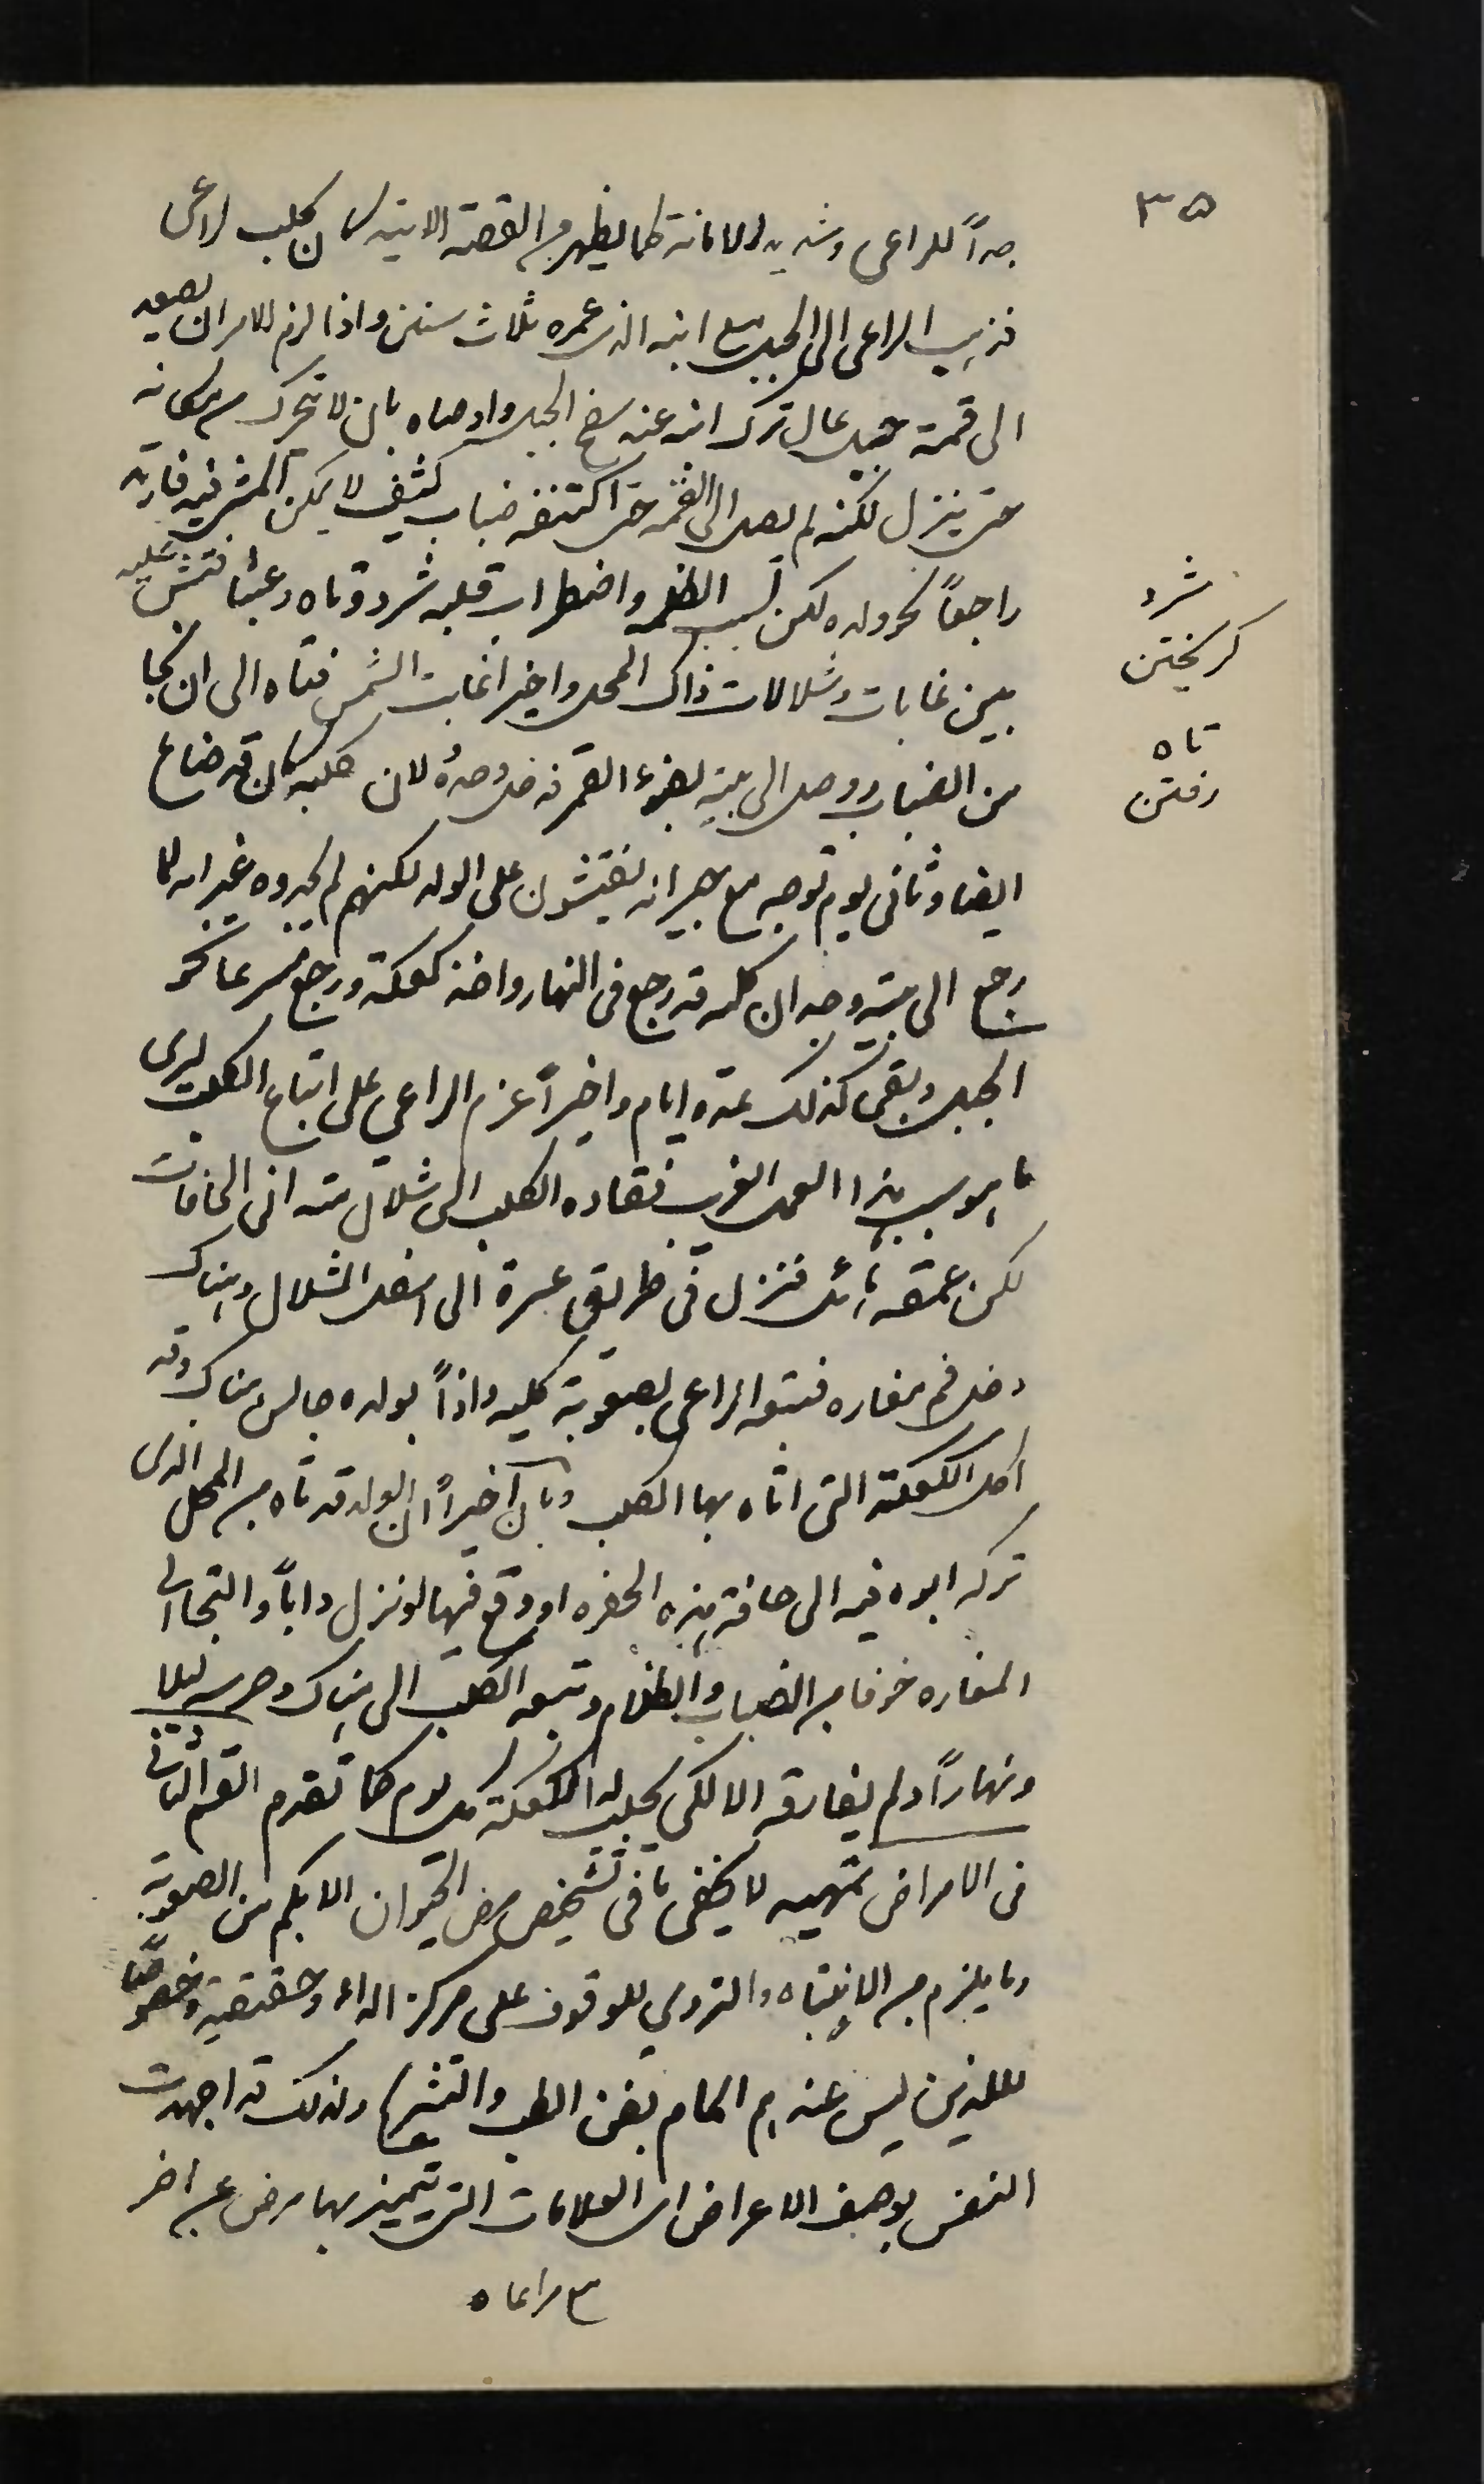 ٣٥
جداً للراعى وشديد الامانة كما يظهر من القصة الاتية كان كلب لراعى
فذهب الراعى الى الجبل مع ابنه الذى عمره ثلاث سنين واذا لزم الامر ان يصعد
الى قمة جبل عال ترك ابنه عند سفح الجبل واوصاه بان لا يتحرك من مكانه
حتى ينزل لكنه لم يصل الى القمه حتى اكتنفه ضباب كثيف لا يمكن المشى فيه فارتد
راجعاً نحو ولده لكن لسبب الظلمه واضطراب قلبه شرد وتاه وعبثا فتش عليه
بين غابات وشلالات ذاك المحل واخيرا غابت الشمس فتاه الى ان نجا
من الضباب ووصل الى بيته بضوء القمر فدخل وحدهُ لان كلبه كان قد ضاع
ايضا وثانى يوم توجه مع جيرانه يفتشون على الولد لكنهم لم يجدوه غير انه لما
رجع الى بيته وجد ان كلبه قد رجع فى النهار واخذ كعكة ورجع مسرعا نحو
الجبل وبقى كذلك عدة ايام واخيراً عزم الراعي على اتباع الكلب ليرى
ما هو سبب هذا العمل الغريب فقاده الكلب الى شلال متدانى الحافات
لكن عمقه هائل فنزل فى طريق عسرة الى اسفل الشلال وهناك
دخل فم مغاره فتبعه الراعى بصعوبة كليه واذاً بولده جالس هناك وقد
اكل الكعكة التى اتاه بها الكلب وبان اخيراً ان الولد قد تاه من المحل الذى
تركه ابوه فيه الى حافة هذه الحفره او وقع فيها او نزل داباً والتجا الى
المغاره خوفا من الضباب والظلام وتبعه الكلب الى هناك وحرسه ليلا
ونهاراً ولم يفارقه الا لكى يجلب له الكعكة كل يوم كما تقدم القسم الثانى
فى الامراض تمهيد لا يخفى ما فى تشخيص مرض الحيوان الابكم من الصعوبة
وما يلزم من الانتباه والتروي للوقوف على مركز الداء وحقيقته وخصوصًا
للذين ليس عندهم المام بفن الطب والتشريح ولذلك قد اجهدت
النفس بوصف الاعراض اى العلامات التى يتميز بها مرض عن اخر
مع مراعاه
شرد
كريختن
تاه
رفتن